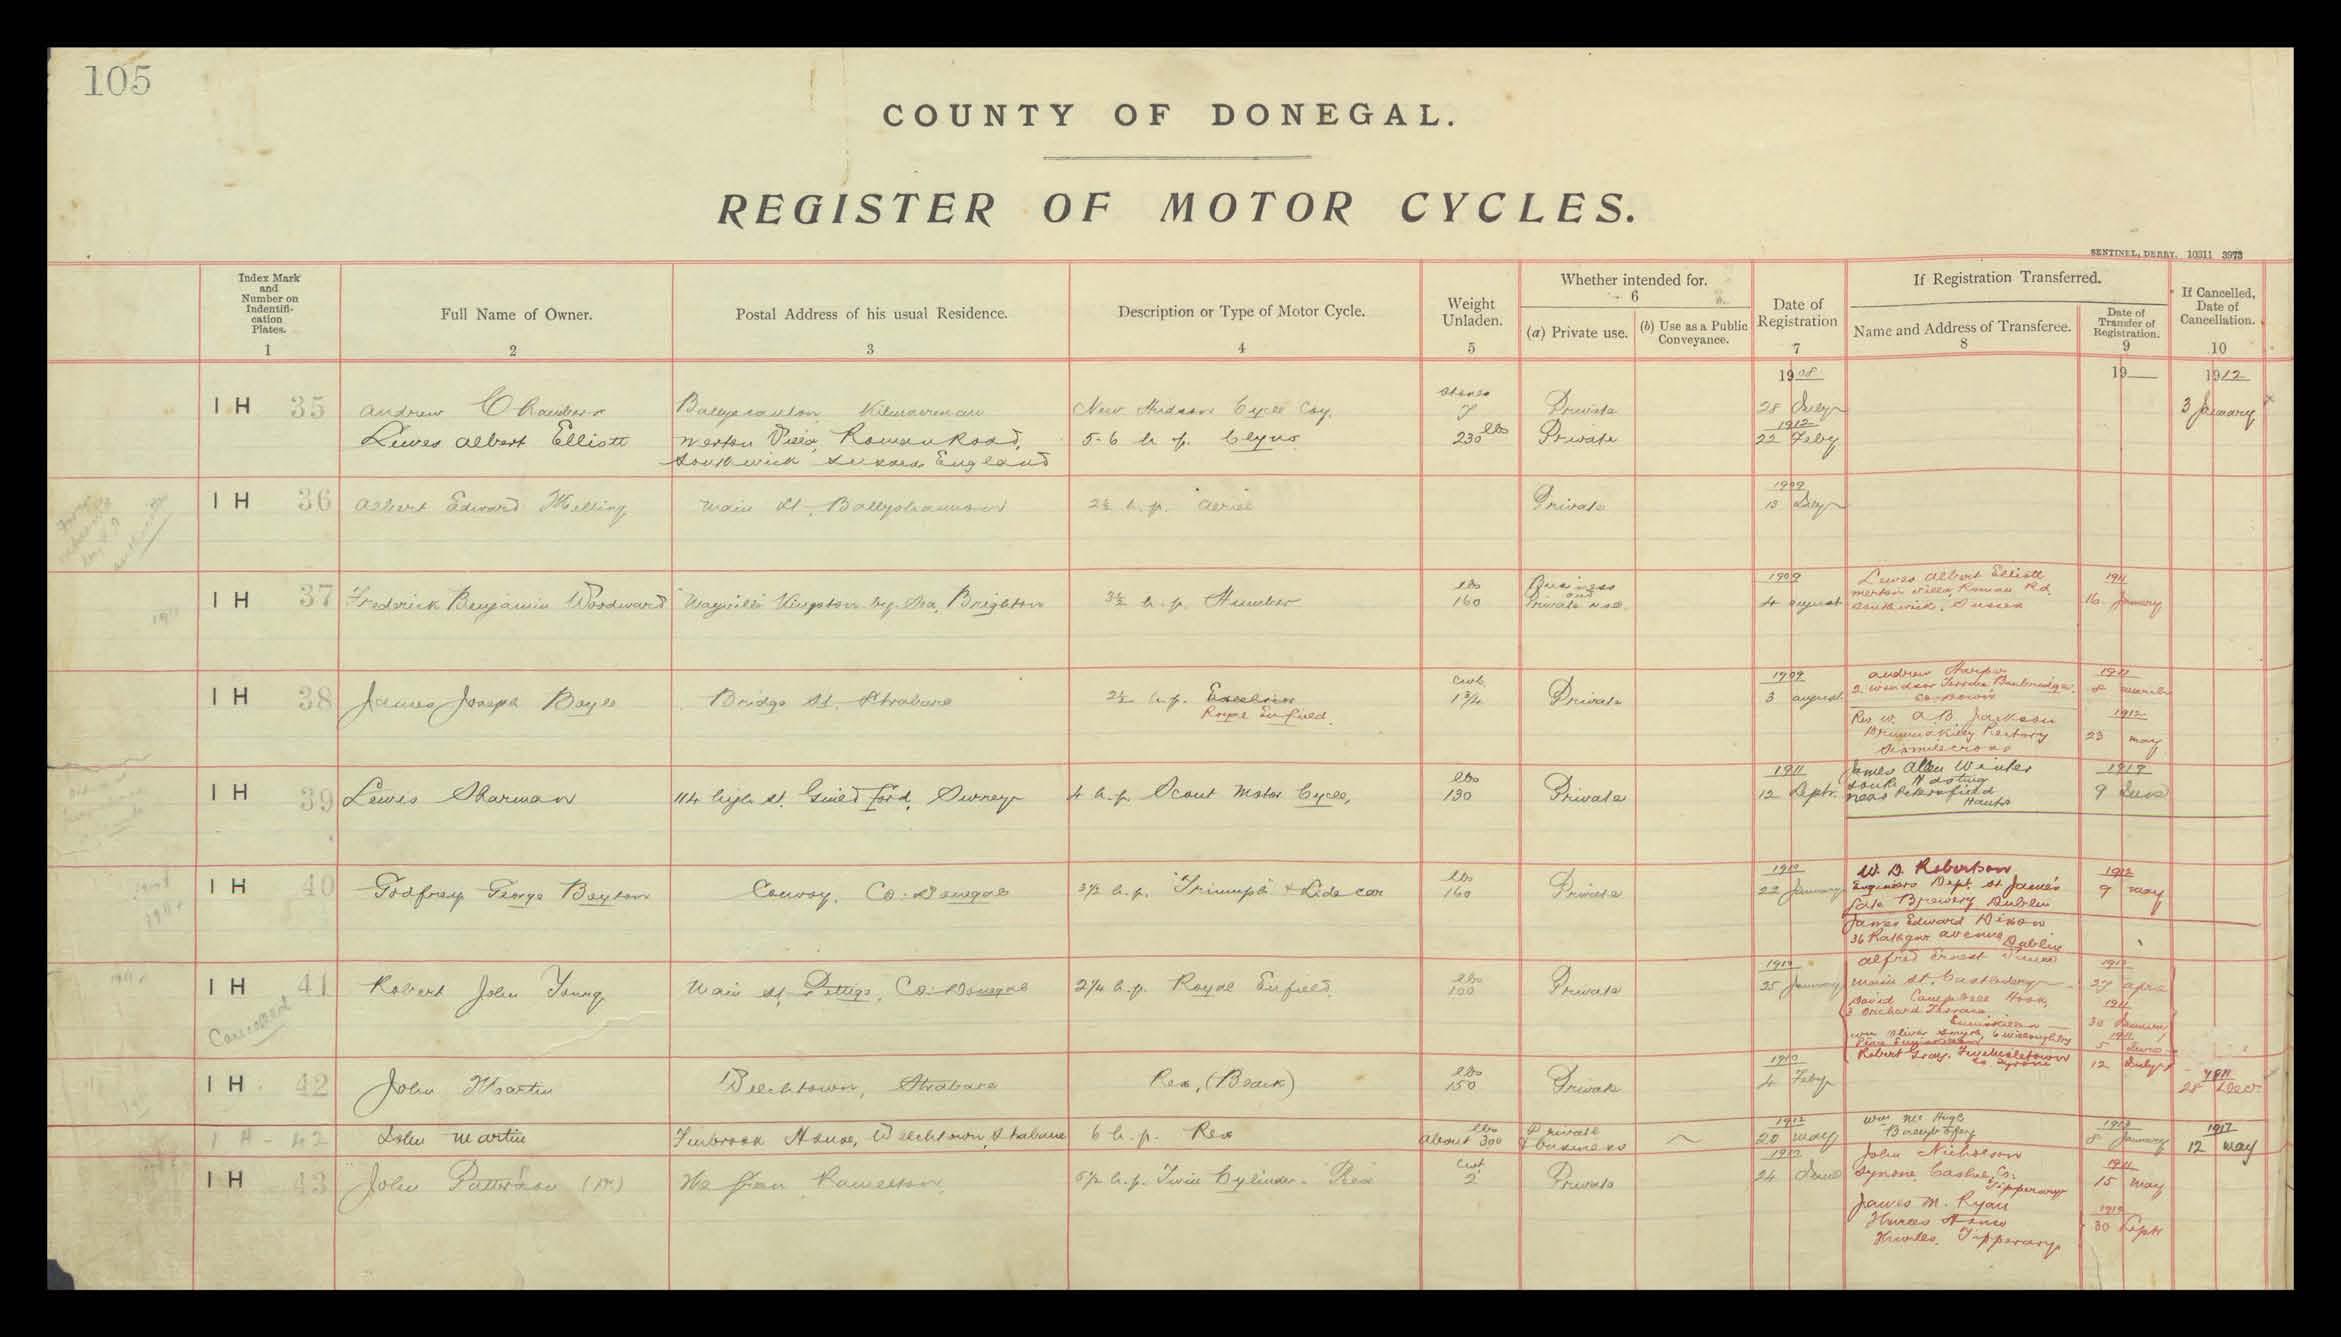 105
COUNTY OF DONEGAL.
REGISTER OF MOTOR CYCLES.
SENTINEL, DERRY. 10311 3973
Index Mark and Number on Indentifi-cation Plates. 1
Full Name of Owner. 2
Postal Address of his usual Residence. 3
Description or Type of Motor Cycle. 4
Weight Unladen. 5
Whether intended for. 6
(a) Private use.
(b) Use as a Public Conveyance.
Date of Registration 7
If Registration Transferred.
Name and Address of Transferee. 8
Date of Transfer of Registration. 9
If Cancelled, Date of Cancellation. 10
1908 19 1912
stones
I H 35 Andrew Chambers Kilmacrenan New Hudson Cycle Coy. 7 Private 28 July 3 January
1912
Lewes Albert Elliott Merton Villa, Roman Road, 5-6 h.p. Clyno 230 lbs Private 22 Feby
Southwick Sussex England
1909
I H 36 Albert Edward Main St. Ballyshannon 2½ h.p. Private 13 July
lbs Business 1909 Lewes Albert Elliott 1911
I H 37 Frederick Benjamin Woodward Kingston by Sea, Brighton 3½ h.p. Humber 160 and Private use. 4 August Merton Villa, Roman Rd. 16 January
Southwick, Sussex
cwt. 1909 Andrew Harper 1911
I H 38 James Joseph Boyle Bridge St. Strabane 2½ h.p. Excelsior 1¾ Private 3 August 2 Windsor Terrace Banbridge 8 March
Royal Enfield. Co. Down
Rev W. A.B. Jackson 1912
Rectory 23 May
Sixmilecross
lbs 1911 James Allen Winter 1919
I H 39 Lewis Sharman 114 High St. Guildford, Surrey 4 h.p. Scout Motor Cycle, 130 Private 12 Septr. South 9 June
near Petersfield
Hants
lbs 1910 W. D. Robertson 1912
I H 40 Godfrey George Boyton Convoy, Co: Donegal 3½ h.p. "Triumph" & Side car 160 Private 22 January Engineers Dept. St James's 9 May
Gate Brewery Dublin
James Edward Dixon
36 Rathgar Avenue Dublin
lbs 1910 Alfred Ernest 1910
I H 41 Robert John Young Main St Pettigo, Co: Donegal 2¼ h.p. Royal Enfield 100 Private 25 January Main St. Castlederg 27 April
Cancelled David Campbell 1911
3 Orchard Terrace 30 January
Enniskillen
Wm Oliver Smyth, 6 Willoughby 1911
Place Enniskillen 5 June
Robert Gray, 12 July
Co. Tyrone
lbs 1910 1911
I H 42 John Martin Strabane Rex, (Black) 150 Private 4 Feby 28 Decr
lbs Private 1912 Wm Mc Hugh 1913 1917
I H - 42 John Martin House, Strabane 6 h.p. Rex about 300 & business 20 May Ballybofey 8 January 12 May
cwt. 1910 John Nicholson 1911
I H 43 John Patterson (Dr.) Ramelton 5½ h.p. Twin Cylinder - Rex 2 Private 24 June Cashel, Co: Tipperary 15 May
James M. Ryan 1912
Thurles House 30 Septr
Thurles. Tipperary